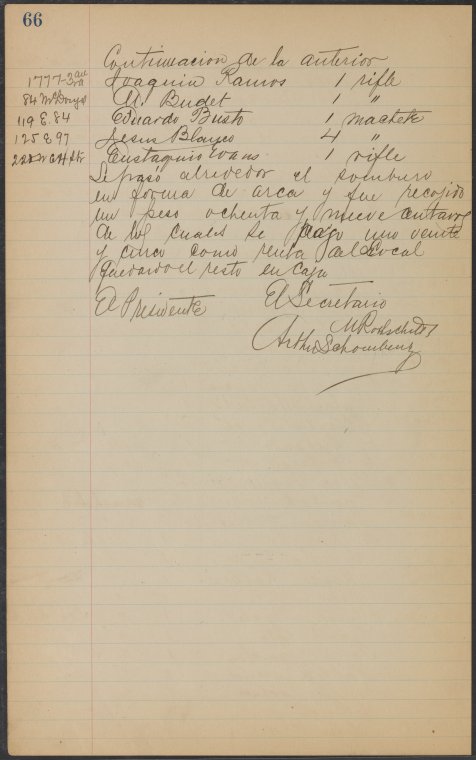 66
Continuacion de la anterior
1777-3 ave Joaquin Ramos 1 rifle
84 Al. Budet 1 "
119 E. 84 Eduardo Busto 1 machete
125 E 97 Jesus Blanco 4 "
Eustaquio Evans 1 rifle
Se pasó alrededor el sombrero
en forma de arca y fue recojido
un peso ochenta y nueve centavos
de los cuales se pago uno veinte
y cinco como renta del local
quedando el resto en Caja
El Presidente El Secretario
M Rothschild
Arthur Schomburg